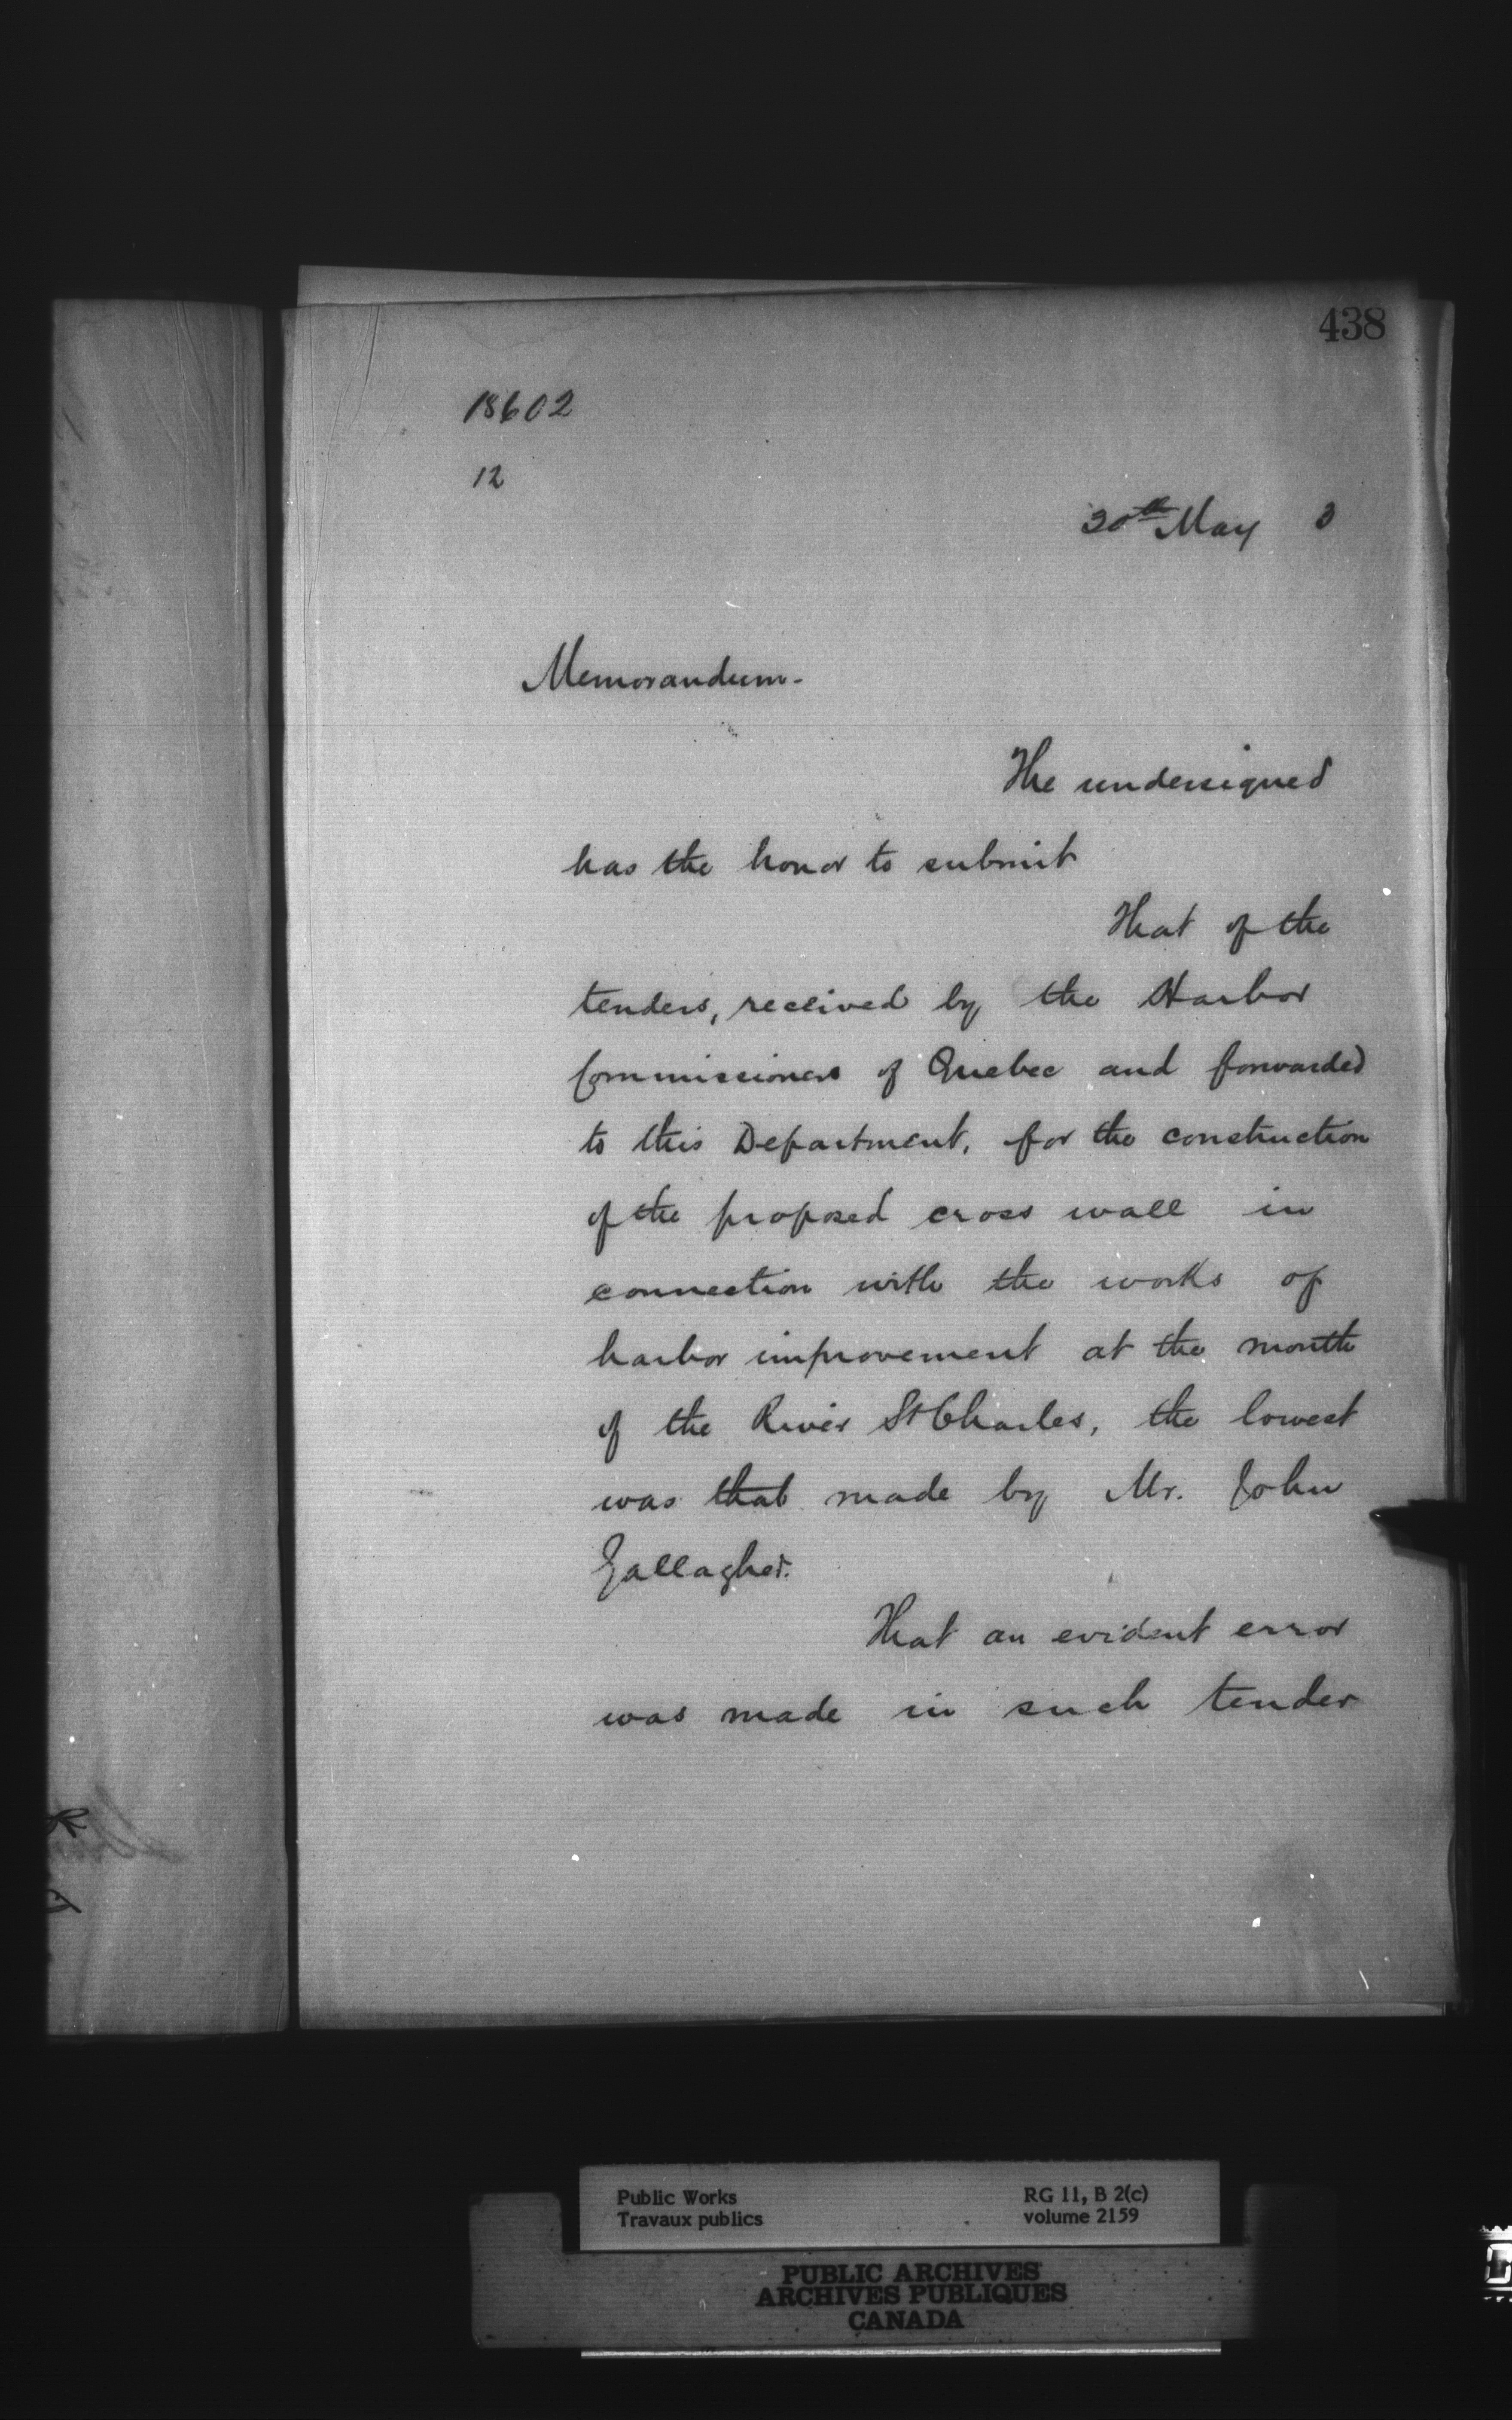 438
18602
12
30th May 3
Memorandum.
The undersigned
has the honor to submit
That of the
tenders, received by the Harbor
Commissioners of Quebec and forwarded
to this Department, for the construction
of the proposed cross wall in
connection with the works of
harbor improvement at the mouth
of the River St Charles, the lowest
was that made by Mr. John
Gallagher.
That an evident error
was made in such tender
Public Works
Travaux publics
RG 11, B 2(c)
volume 2159
PUBLIC ARCHIVES
ARCHIVES PUBLIQUES
CANADA